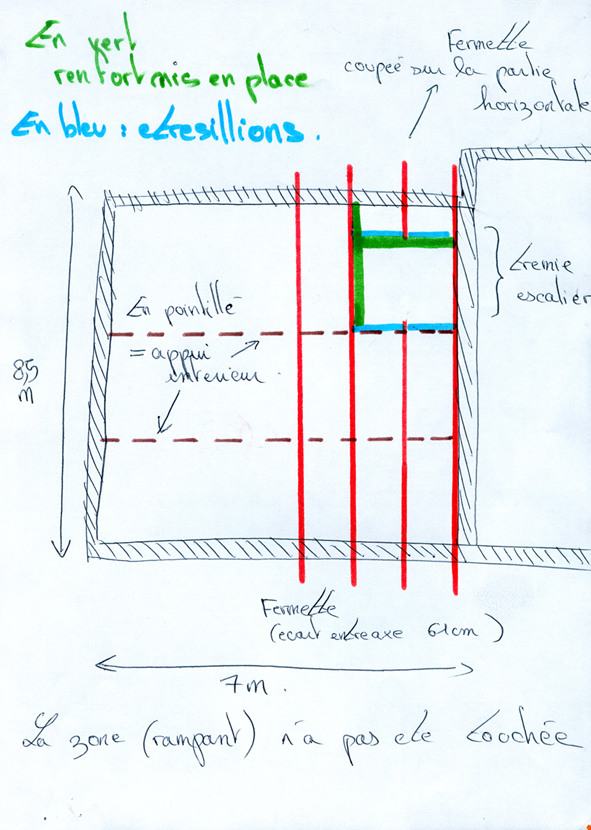 En vert
renfort mis en place
En bleu : etresillions.
Fermette
coupée sur la partie
horizontale
Tremie
escalier
En pointillé
= appui
interieur.
8,5
m
Fermette
(ecart entreaxe 61cm)
7m.
La zone (rampant) n'a pas ete touchée